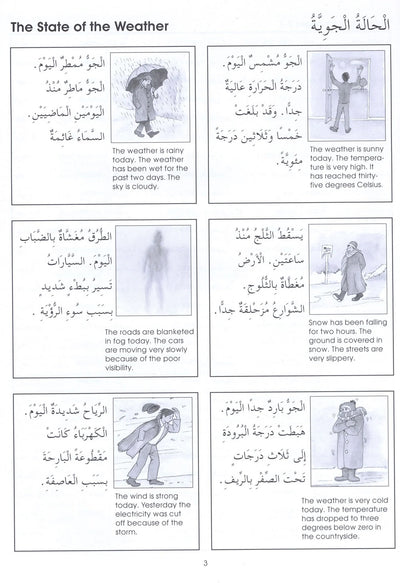 The State of the Weather
الْحَالَةُ الْجَوِيَّةُ
الْجَوُّ مُشْمِسٌ الْيَوْمَ.
دَرَجَةُ الْحَرَارَةِ عَالِيَةٌ
جِدًّا. وَقَدْ بَلَغَتْ
خَمْسًا وَثَلَاثِينَ دَرَجَةً
مِئَوِيَّةً.
The weather is sunny
today. The tempera-
ture is very high. It
has reached thirty-
five degrees Celsius.
الْجَوُّ مُمْطِرٌ الْيَوْمَ.
الْجَوُّ مَاطِرٌ مُنْذُ
الْيَوْمَيْنِ الْمَاضِيَيْنِ.
السَّمَاءُ غَائِمَةٌ
The weather is rainy
today. The weather
has been wet for the
past two days. The
sky is cloudy.
يَسْقُطُ الثَّلْجُ مُنْذُ
سَاعَتَيْنِ. الْأَرْضُ
مُغَطَّاةٌ بِالثُّلُوجِ.
الشَّوَارِعُ مُزَحْلِقَةٌ جِدًّا.
Snow has been falling
for two hours. The
ground is covered in
snow. The streets are
very slippery.
الطُّرُقُ مُغَشَّاةٌ بِالضَّبَابِ
الْيَوْمَ. السَّيَّارَاتُ
تَسِيرُ بِبُطْءٍ شَدِيدٍ
بِسَبَبِ سُوءِ الرُّؤْيَةِ.
The roads are blanketed
in fog today. The cars
are moving very slowly
because of the poor
visibility.
الْجَوُّ بَارِدٌ جِدًّا الْيَوْمَ.
هَبَطَتْ دَرَجَةُ الْبُرُودَةِ
إِلَى ثَلَاثِ دَرَجَاتٍ
تَحْتَ الصِّفْرِ بِالرِّيفِ.
The weather is very cold
today. The temperature
has dropped to three
degrees below zero in
the countryside.
الرِّيَاحُ شَدِيدَةٌ الْيَوْمَ.
الْكَهْرَبَاءُ كَانَتْ
مَقْطُوعَةً الْبَارِحَةَ
بِسَبَبِ الْعَاصِفَةِ.
The wind is strong
today. Yesterday the
electricity was cut
off because of the
storm.
3